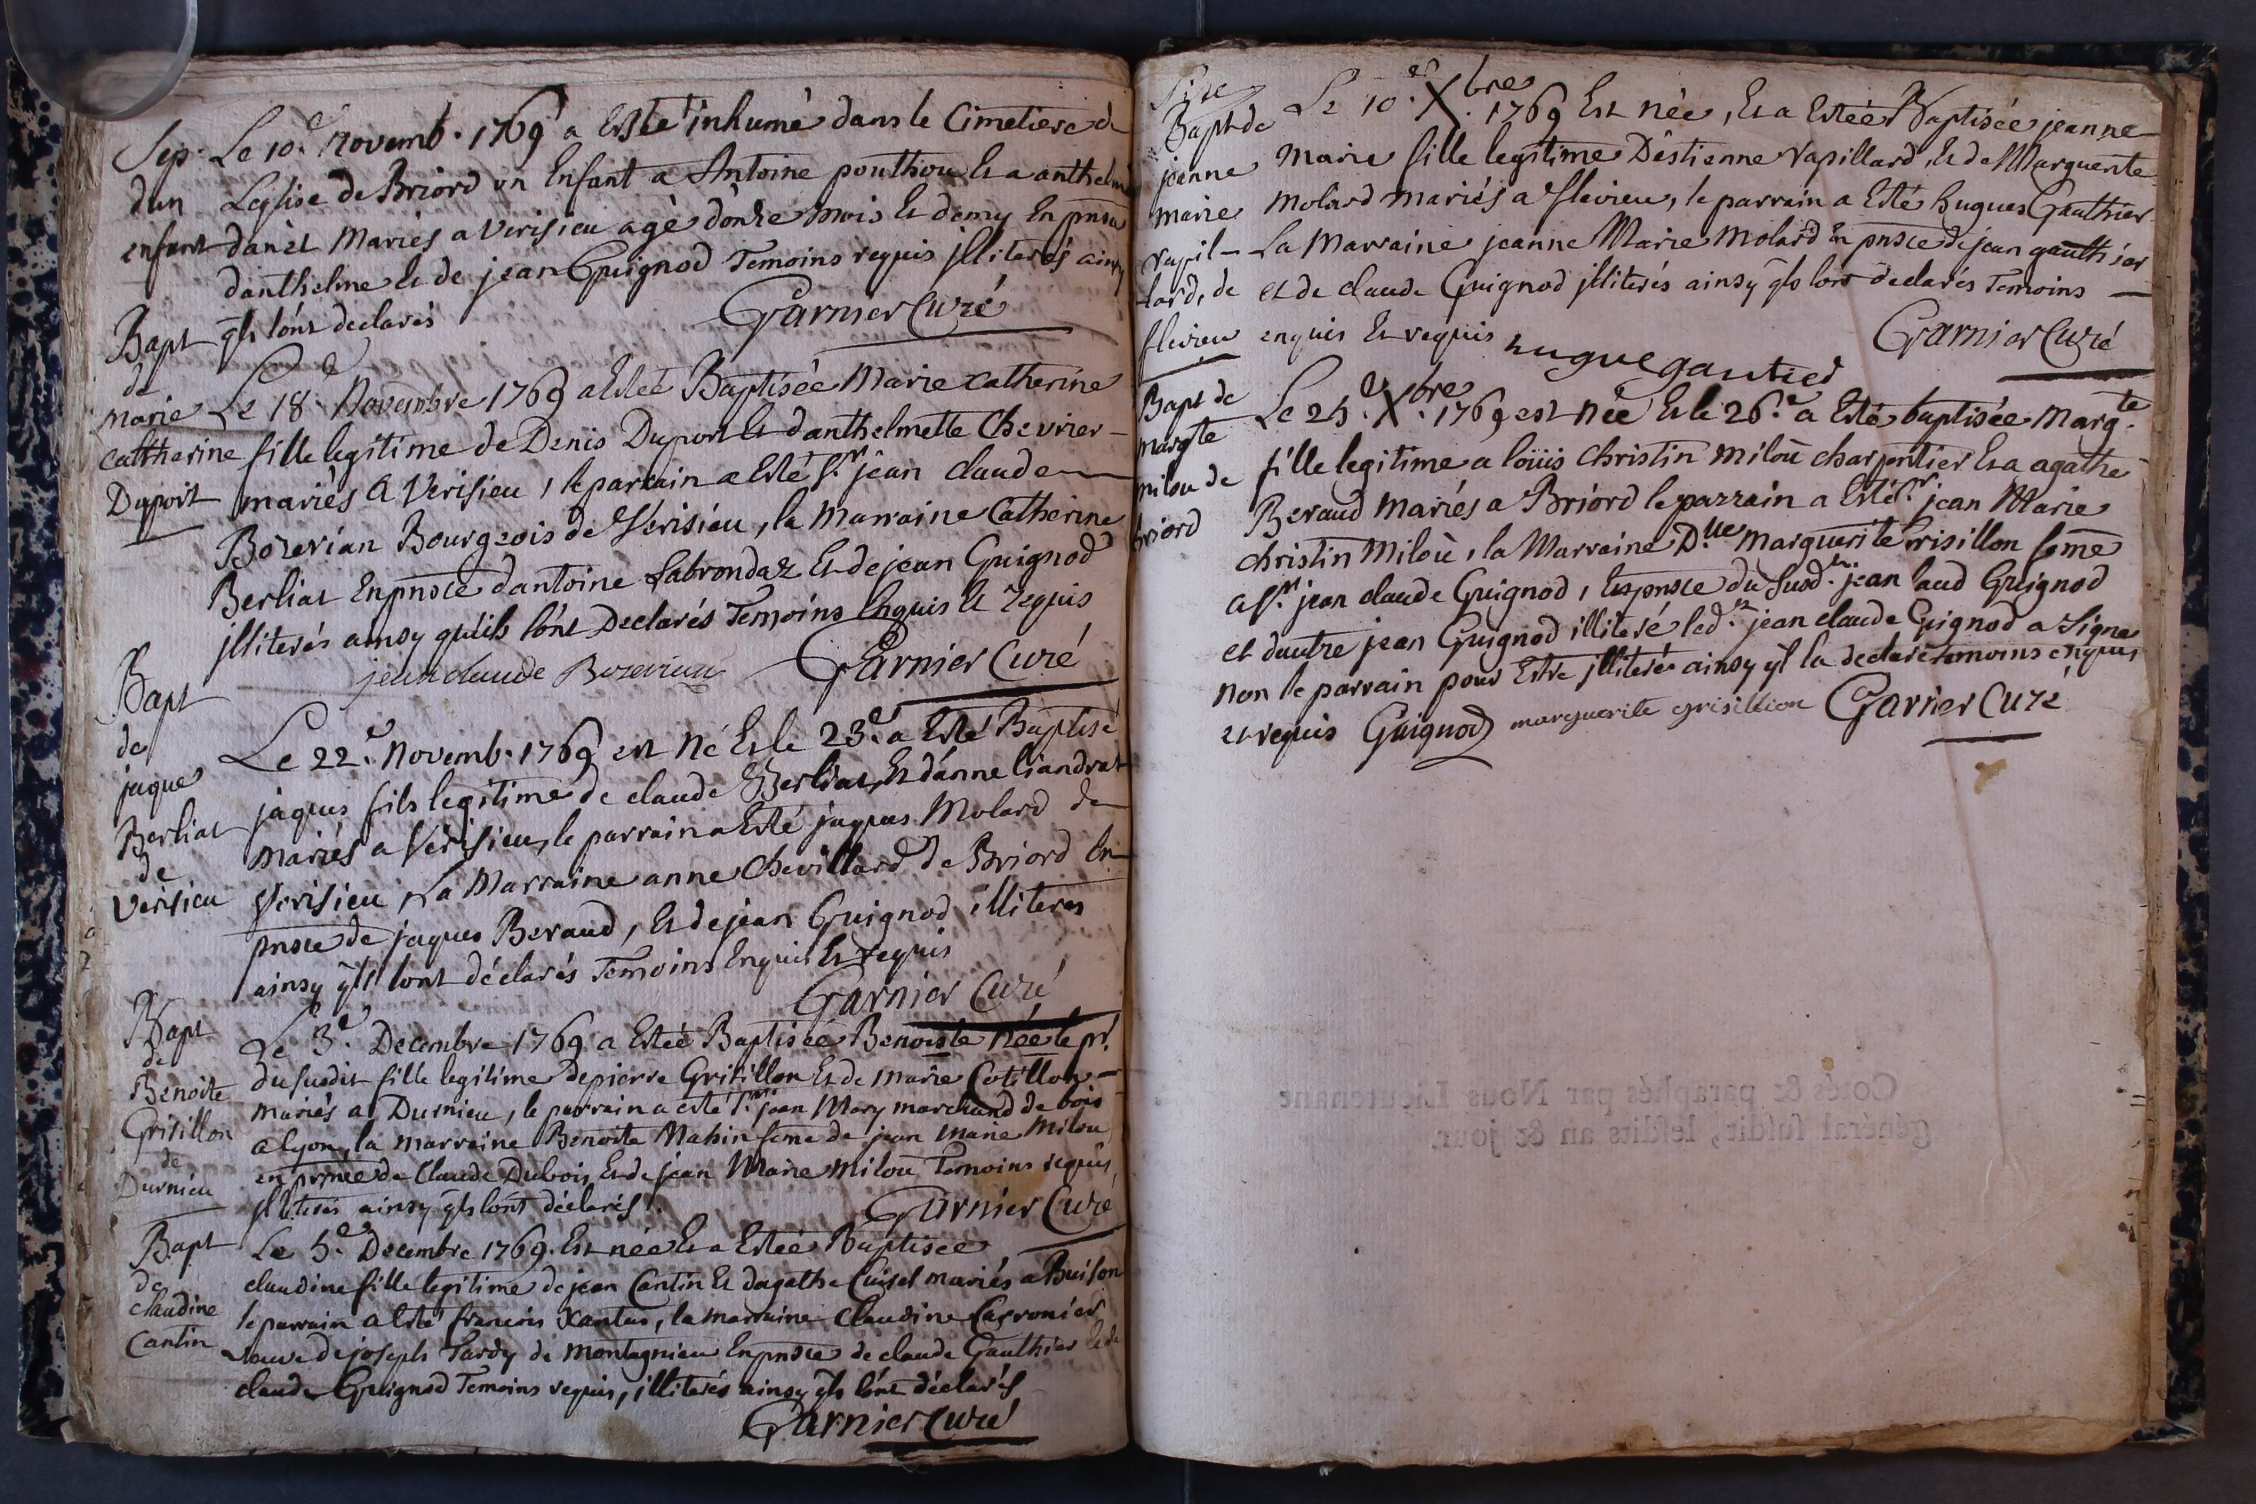 Sep. Le 10.e Novemb. 1769 a Esté inhumé dans le Cimetiere de
dun Leglise de Briord un Enfant a Antoine pouthou Et a anthelme
enfant danet Mariés a Verisieu agé donze mois Et demy En pnsce
danthelme Et de jean Guignod Temoins requis jlliterés ainsy
qls lónt declarés Garnier Curé
Bapt
de
Marie
Catherine
Duport
Le 18.e Novembre 1769 a Estée Baptisée Marie Catherine
fille legitime de Denis Duport Et danthelmette Chevrier
mariés a Verisieu, le parrain a Esté Sr. jean claude
Bozerian Bourgeois de Verisieu, la Marraine Catherine
Berliat En pnsce dantoine Labrondaz Et de jean Guignod
jlliterés ainsy quils lónt Declarés Temoins Enquis Et Requis
jean claude Bozerian Garnier Curé
Bapt
de
jaque
Berliat
de
Verisieu
Le 22.e Novemb. 1769 est Né Et le 23.e a Esté Baptisé
jaques fils legitime de claude Berliat, Et dánne liandrat
Mariés a Verisieu, le parrain a Esté jaques Molard de
Verisieu, La Marraine anne Chevillard de Briord En
pnsce de jaques Beraud, Et de jean Guignod illiterés
ainsy qls lont déclarés Temoins Enquis Et requis
Garnier Curé
Bapt
de
Benoite
Grisillon
de
Durnieu
Le 3.e Decembre 1769 a Estée Baptisée Benoiste Née le pr.
du susdit fille legitime de pierre Grisillon Et de Marie Cotillon
mariés a Durnieu, le parrain a esté Sr. jean Mary marchand de bois
a lyon, la marraine Benoite Mahin feme de jean Marie Milou
en pnsce de Claude Dubois, Et de jean Marie Milou Temoins requis,
jlliterés ainsy qls lont déclarés. Garnier Curé
Bapt
de
claudine
Cantin
Le 5.e Decembre 1769. Est née Et a Estée Baptisée
claudine fille legitime de jean Cantin Et dagathe Cuisel mariés a Buison
le parrain a Esté francois Xantus, la marraine Claudine Carronier
veuve de joseph Tardy de Montagnieu En pnsce de claude Gauthier Et de
claude Guignod Temoins requis, jlliterés ainsy qls lónt déclarés
Garnier Curé
Bapt de
jeanne
Marie
Vapil-
lard, de
flevieu
Le 10.e Xbre. 1769 Est née, Et a Estéé Baptisée jeanne
Marie fille legitime Déstienne Vapillard, Et de Marguerite
Molard mariés a flevieu, le parrain a Esté hugues Gauthier
La Marraine jeanne Marie Molard En pnsce de jean gauthier
et de claude Guignod jlliterés ainsy qls lont declarés Temoins
enquis Et requis hugue gautied Garnier Curé
Bapt de
Margte
milou de
briord
Le 25.e Xbre. 1769 est Née Et le 26.e a Esté baptisée Margte.
fille legitime a loüis Christin Miloù charpentier Et a agathe
Beraud Mariés a Briord le parrain a Esté Sr. jean Marie
christin Miloù, la Marraine Dlle Marguerite Grisillon feme
a Sr. jean claude Guignod, En pnsce du susd.t jean laud Guignod
et dautre jean Guignod illiteré led.t jean claude Guignod a signé
non le parrain pour Estre jlliteré ainsy ql la declaré temoins enquis
et requis Guignod marguerite grisillion Garnier Curé
Cotés & paraphés par Nous Lieutenant
général susdit, lesdits an & jour.